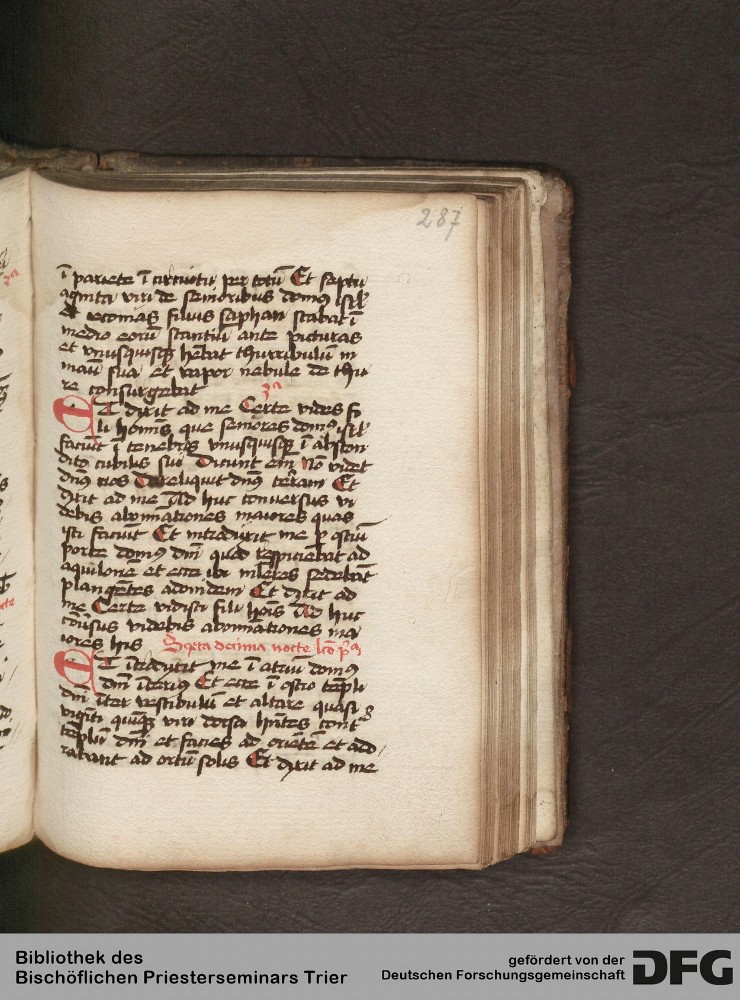 287
ī pariete ī circuitu per totū Et septu
aginta viri de senioribus domꝰ isrl̄
et ieconias filius saphan stabat ī
medio eorū stantiū ante picturas
et vnusquisqꝫ hēbat thurribulū in
manu sua et vapor nebule de thu
re consurgebat 3ᵃ
Et dixit ad me Certe vides fi
li homīs que seniores domꝰ isrl̄
faciūt ī tenebris vnusquisqꝫ ī abscon
dito cubilis sui Dicunt enī Nō videt
dn̄s nos Dereliquit dn̄s terram Et
dixit ad me Ad huc conversus vi
debis abominationes maiores quas
isti faciūt Et introduxit me p ostiū
porte domꝰ dn̄i quod respiciebat ad
aquilonē et ecce ibi mlieres sedebāt
plangētes adonidem Et dixit ad
me Certe vidisti fili hoīs Ad huc
cōūsus videbis abominationes ma
iores his Sexta decima nocte lcō pᵃ
Et ītroduxit me ī atriū domꝰ
dn̄i īteriꝰ Et ecce ī ostio tēpli
dn̄i īter vestibulū et altare quasi
viginti quīqꝫ viri dorsa hn̄tes contᵃ
tēplū dn̄i et facies ad oriētē et ado
rabant ad ortū solis Et dixit ad me
Bibliothek des
Bischöflichen Priesterseminars Trier
gefördert von der
Deutschen Forschungsgemeinschaft
DFG